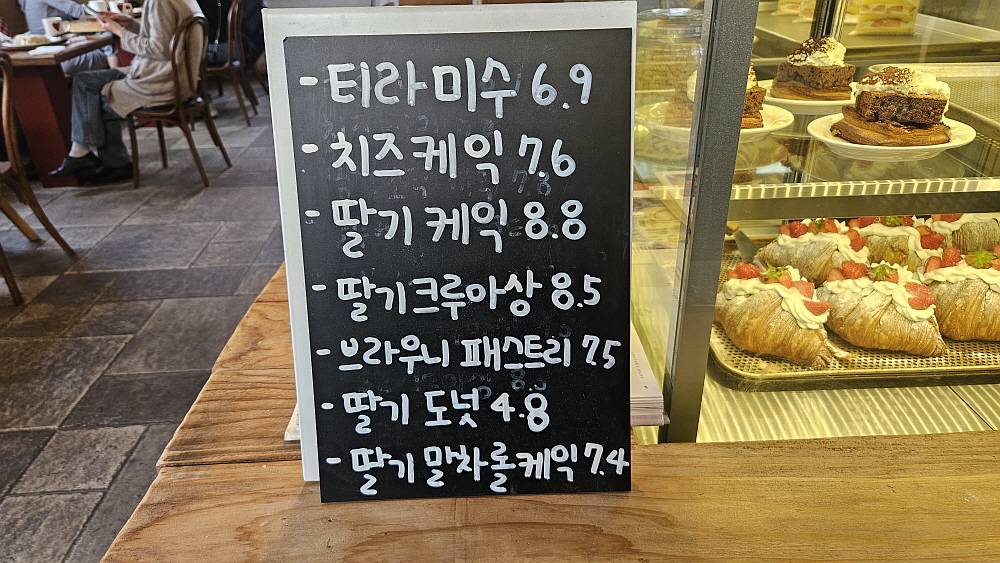 - 티라미수 6.9
- 치즈케익 7.6
- 딸기 케익 8.8
- 딸기크루아상 8.5
- 브라우니 패스트리 7.5
- 딸기 도넛 4.8
- 딸기 말차롤케익 7.4